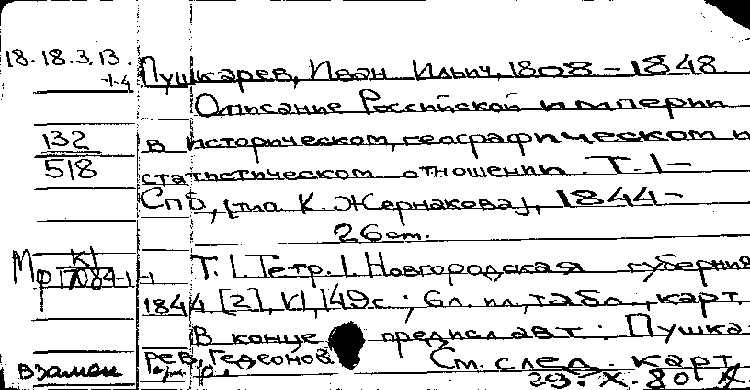 18.18.3.13. Пушкарев, Иван Ильич, 1808-1848.
1-4
Описание Российской империи
132 в историческом, географическом и
518 статистическом отношении. Т. 1-
Спб, [тип. К. Жернакова], 1844-
26 cm.
Т. 1. Тетр. 1. Новгородская губерния
1844. [2], VI, 149 с.; 6 л. ил., табл., карт.
В конце предисл. авт.: Пушка-
рев, Гедеонов.
взамен См. след. карт.
29.X.80г.